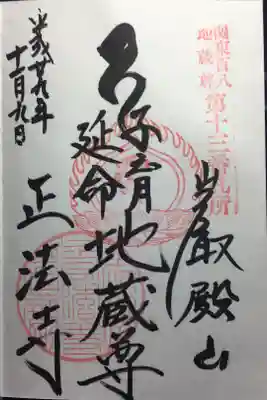 関東百八
地蔵尊
第十三番札所
巌殿山
子育
延命
地蔵尊
正法寺
平成廿九年
十一月九日